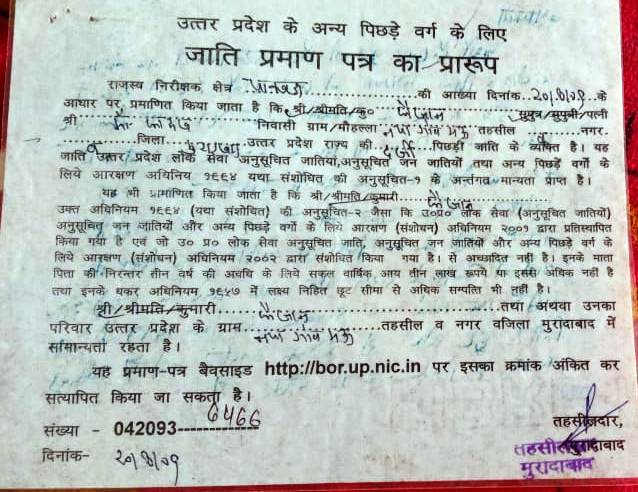 उत्तर प्रदेश के अन्य पिछड़े वर्ग के लिए
जाति प्रमाण पत्र का प्रारूप
राजस्व निरीक्षक क्षेत्र ............ की आख्या दिनांक.. ..के
आधार पर प्रमाणित किया जाता है कि श्री/श्रीमति/कु० फैजान सुपुत्र/सुपुत्री/पत्नी
श्री निवासी ग्राम/मौहल्ला नया गांव तहसील व नगर.
व जिला मुरादाबाद उत्तर प्रदेश राज्य की दर्जी पिछड़ी जाति के व्यक्ति है। यह
जाति उत्तर प्रदेश लोक सेवा अनुसूचित जातियां,अनुसूचित जन जातियों तथा अन्य पिछड़े वर्गो के
लिये आरक्षण अधिनिय १९६४ यथा संशोधित की अनुसूचित-१ के अन्तर्गत मान्यता प्राप्त है।
यह भी प्रामाणित किया जाता है कि श्री/श्रीमति/कुमारी फैजान
उक्त अधिनियम १९६४ (यथा संशोधित) की अनुसूचित-२ जैसा कि उ०प्र० लोक सेवा (अनुसूचित जातियों)
अनुसूचित जन जातियों और अन्य पिछड़े वर्गो के लिये आरक्षण (संशोधन) अधिनियम २००१ द्वारा प्रतिस्थापित
किया गया है एवं जो उ० प्र० लोक सेवा अनुसूचित जाति, अनुसूचित जन जातियों और अन्य पिछड़े वर्ग के
लिये आरक्षण (संशोधन) अधिनियम २००२ द्वारा संशोधित किया गया है। से अच्छादित नही है। इनके माता
पिता की निरन्तर तीन वर्ष की अवधि के लिये सकल वार्षिक आय तीन लाख रूपये या इससे अधिक नही है
तथा इनके धकर अधिनियम १९५७ में लक्ष्य निहित छूट सीमा से अधिक सम्पत्ति भी नही है।
श्री/श्रीमति/कुमारी फैजान तथा अथवा उनका
परिवार उत्तर प्रदेश के ग्राम नया गांव तहसील व नगर वजिला मुरादाबाद में
सामान्यता रहता है।
यह प्रमाण-पत्र बैवसाइड http://bor.up.nic.in पर इसका क्रमांक अंकित कर
सत्यापित किया जा सकता है।
संख्या - 042093 6466
तहसीलदार,
दिनांक- मुरादाबाद
तहसीलदार
मुरादाबाद